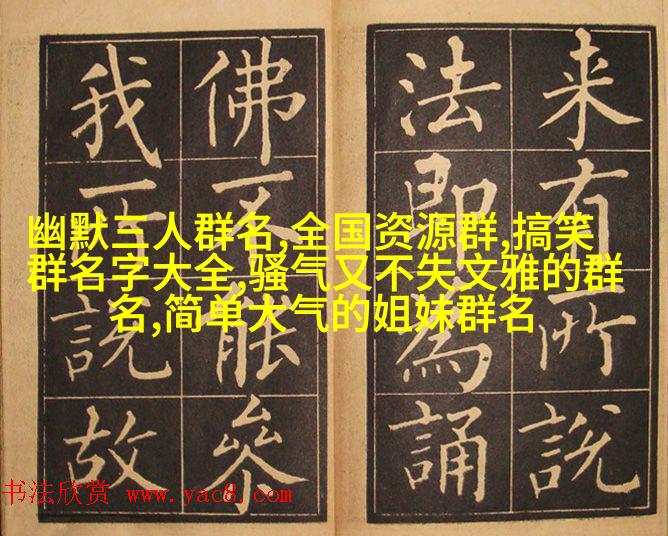 来有所說
法即為誦
佛不能叅
我所說故
幽默三人群名,全国资源群,搞笑
群名字大全,骚气又不失文雅的群
名,简单大气的姐妹群名
书法欣赏 www.yac8.com